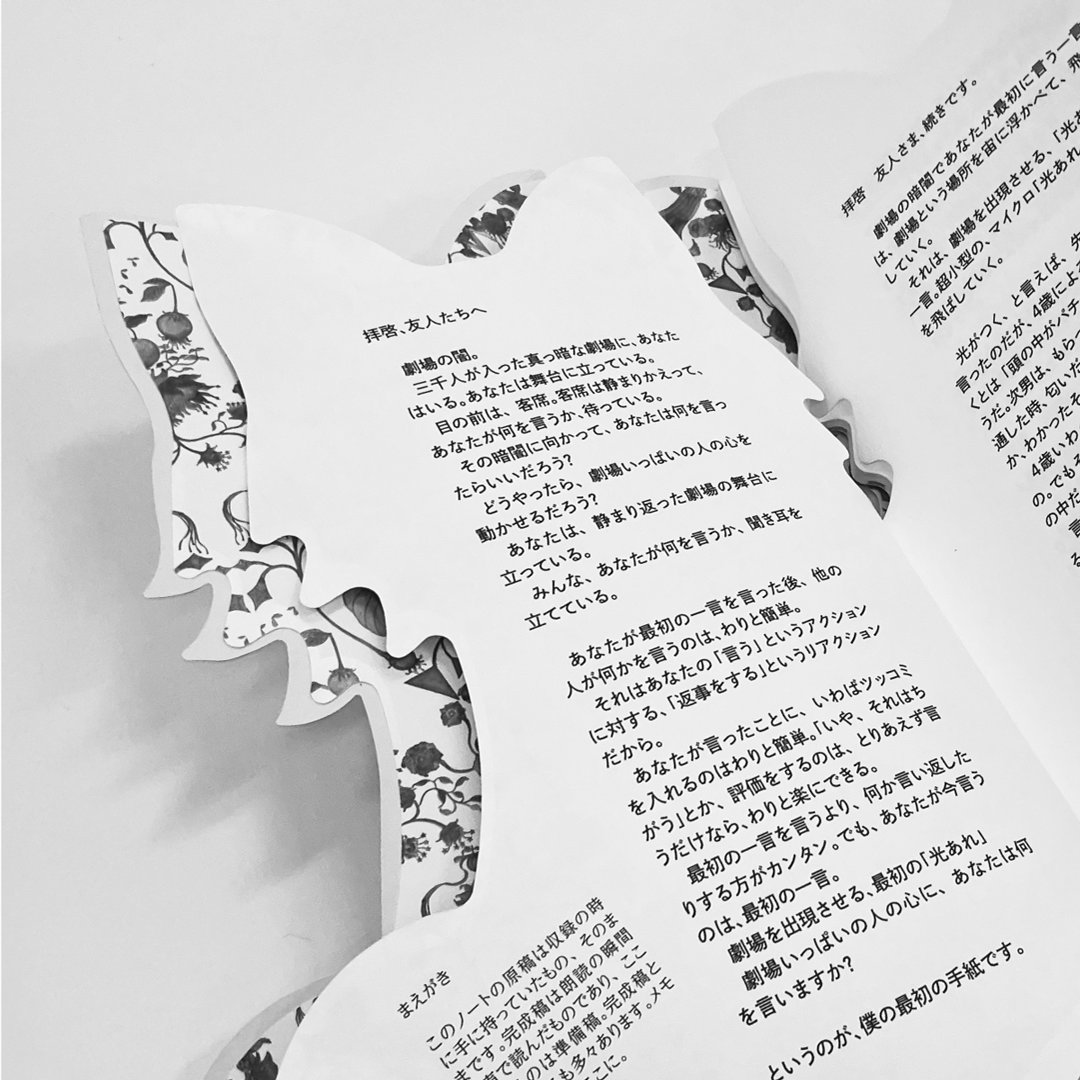 拝啓、友人たちへ
劇場の闇。
三千人が入った真っ暗な劇場に、あなた
はいる。あなたは舞台に立っている。
目の前は、客席。客席は静まりかえって、
あなたが何を言うか、待っている。
その暗闇に向かって、あなたは何を言っ
たらいいだろう?
どうやったら、劇場いっぱいの人の心を
動かせるだろう?
あなたは、静まり返った劇場の舞台に
立っている。
みんな、あなたが何を言うか、聞き耳を
立てている。
あなたが最初の一言を言った後、他の
人が何かを言うのは、わりと簡単。
それはあなたの「言う」というアクション
に対する、「返事をする」というリアクション
だから。
あなたが言ったことに、いわばツッコミ
を入れるのはわりと簡単。「いや、それはち
がう」とか、評価をするのは、とりあえず言
うだけなら、わりと楽にできる。
最初の一言を言うより、何か言い返した
りする方がカンタン。でも、あなたが今言う
のは、最初の一言。
劇場を出現させる、最初の「光あれ」
劇場いっぱいの人の心に、あなたは何
を言いますか?
というのが、僕の最初の手紙です。
まえがき
このノートの原稿は収録の時
に手に持っていたもの、そのま
まです。完成稿は朗読の瞬間
で読んだものであり、ここ
のは準備稿。完成稿と
も多々あります。メモ
こに。
拝啓 友人さま、続きです。
劇場の暗闇であなたが最初に言う一言
は、劇場という場所を宙に浮かべて、飛
していく。
それは、劇場を出現させる、「光あ
一言。超小型の、マイクロ「光あれ
を飛ばしていく。
光がつく、と言えば、先
言ったのだが、4歳によ
くとは「頭の中がパチ
うだ。次男は、もらっ
通した時、匂いだ
か、わかったそ
4歳いわ
の。でもそ
の中だ